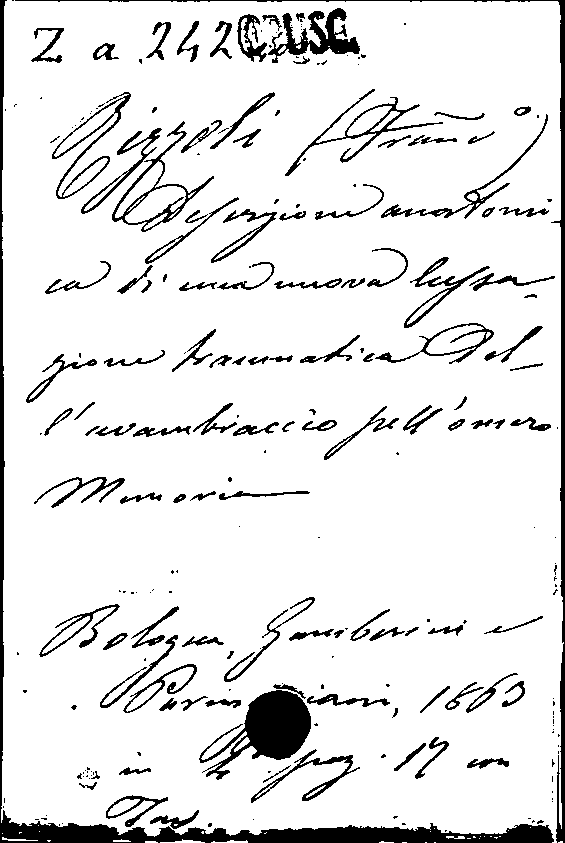 Z a 242 OPUSC.
Rizzoli (Franc.º)
Descrizione anatomi-
ca di una nuova lussa-
zione traumatica del-
l'avambraccio sull'omero
Memoria
Bologna, Gamberini e
Parmeggiani, 1863
in 4º pag. 17 con
Tav.